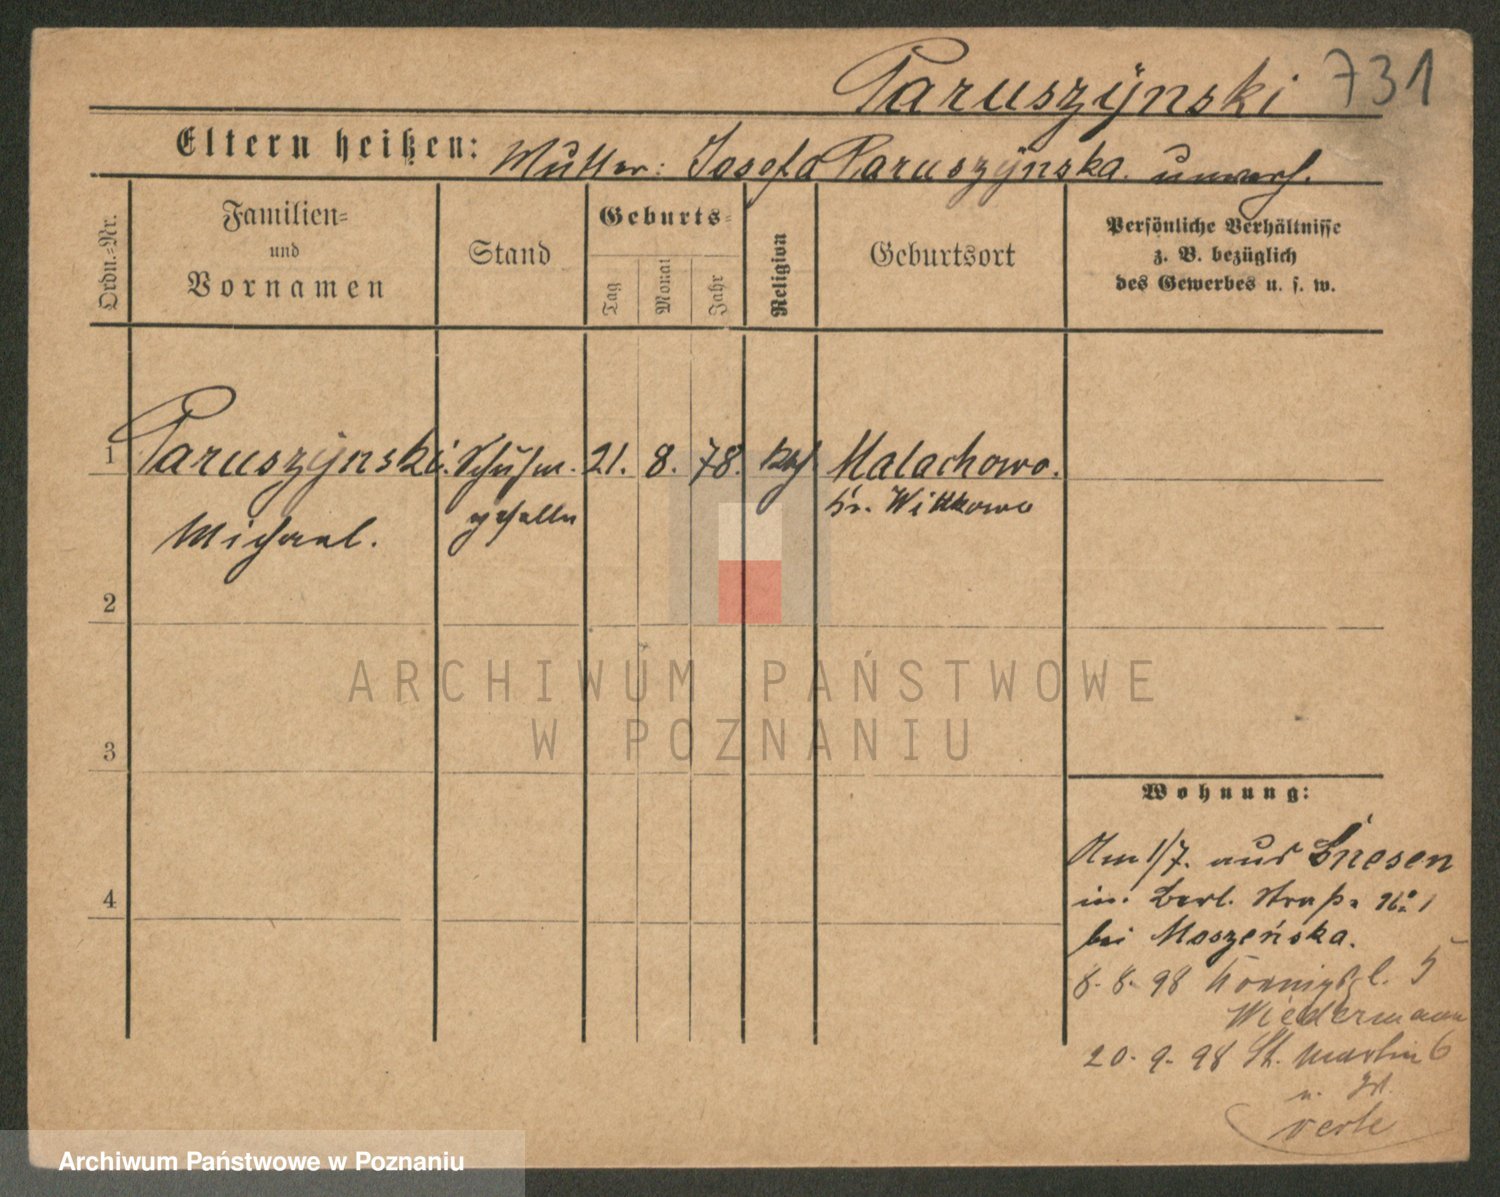 Paruszÿnski 731
Eltern heißen: Mutter: Josefa Paruszÿnska. unverh.
Ordn.-Nr.
Familien-
und
Vornamen
Stand
Geburts-
Tag
Monat
Jahr
Religion
Geburtsort
Persönliche Verhältnisse
z. B. bezüglich
des Gewerbes u. s. w.
1 Paruszÿnski. Schuhm. 21. 8. 78. kath. Malachowo.
Michael. geselle Kr. Wittkowo
2
3
4
ARCHIWUM PAŃSTWOWE
W POZNANIU
Wohnung:
Am 1/7. aus Gnesen
in Berl. Straße No 1
bei Moszeńska.
8. 8. 98 Koenigspl. 5
Wiedermann
20. 9. 98 St. Martin 6
Archiwum Państwowe w Poznaniu